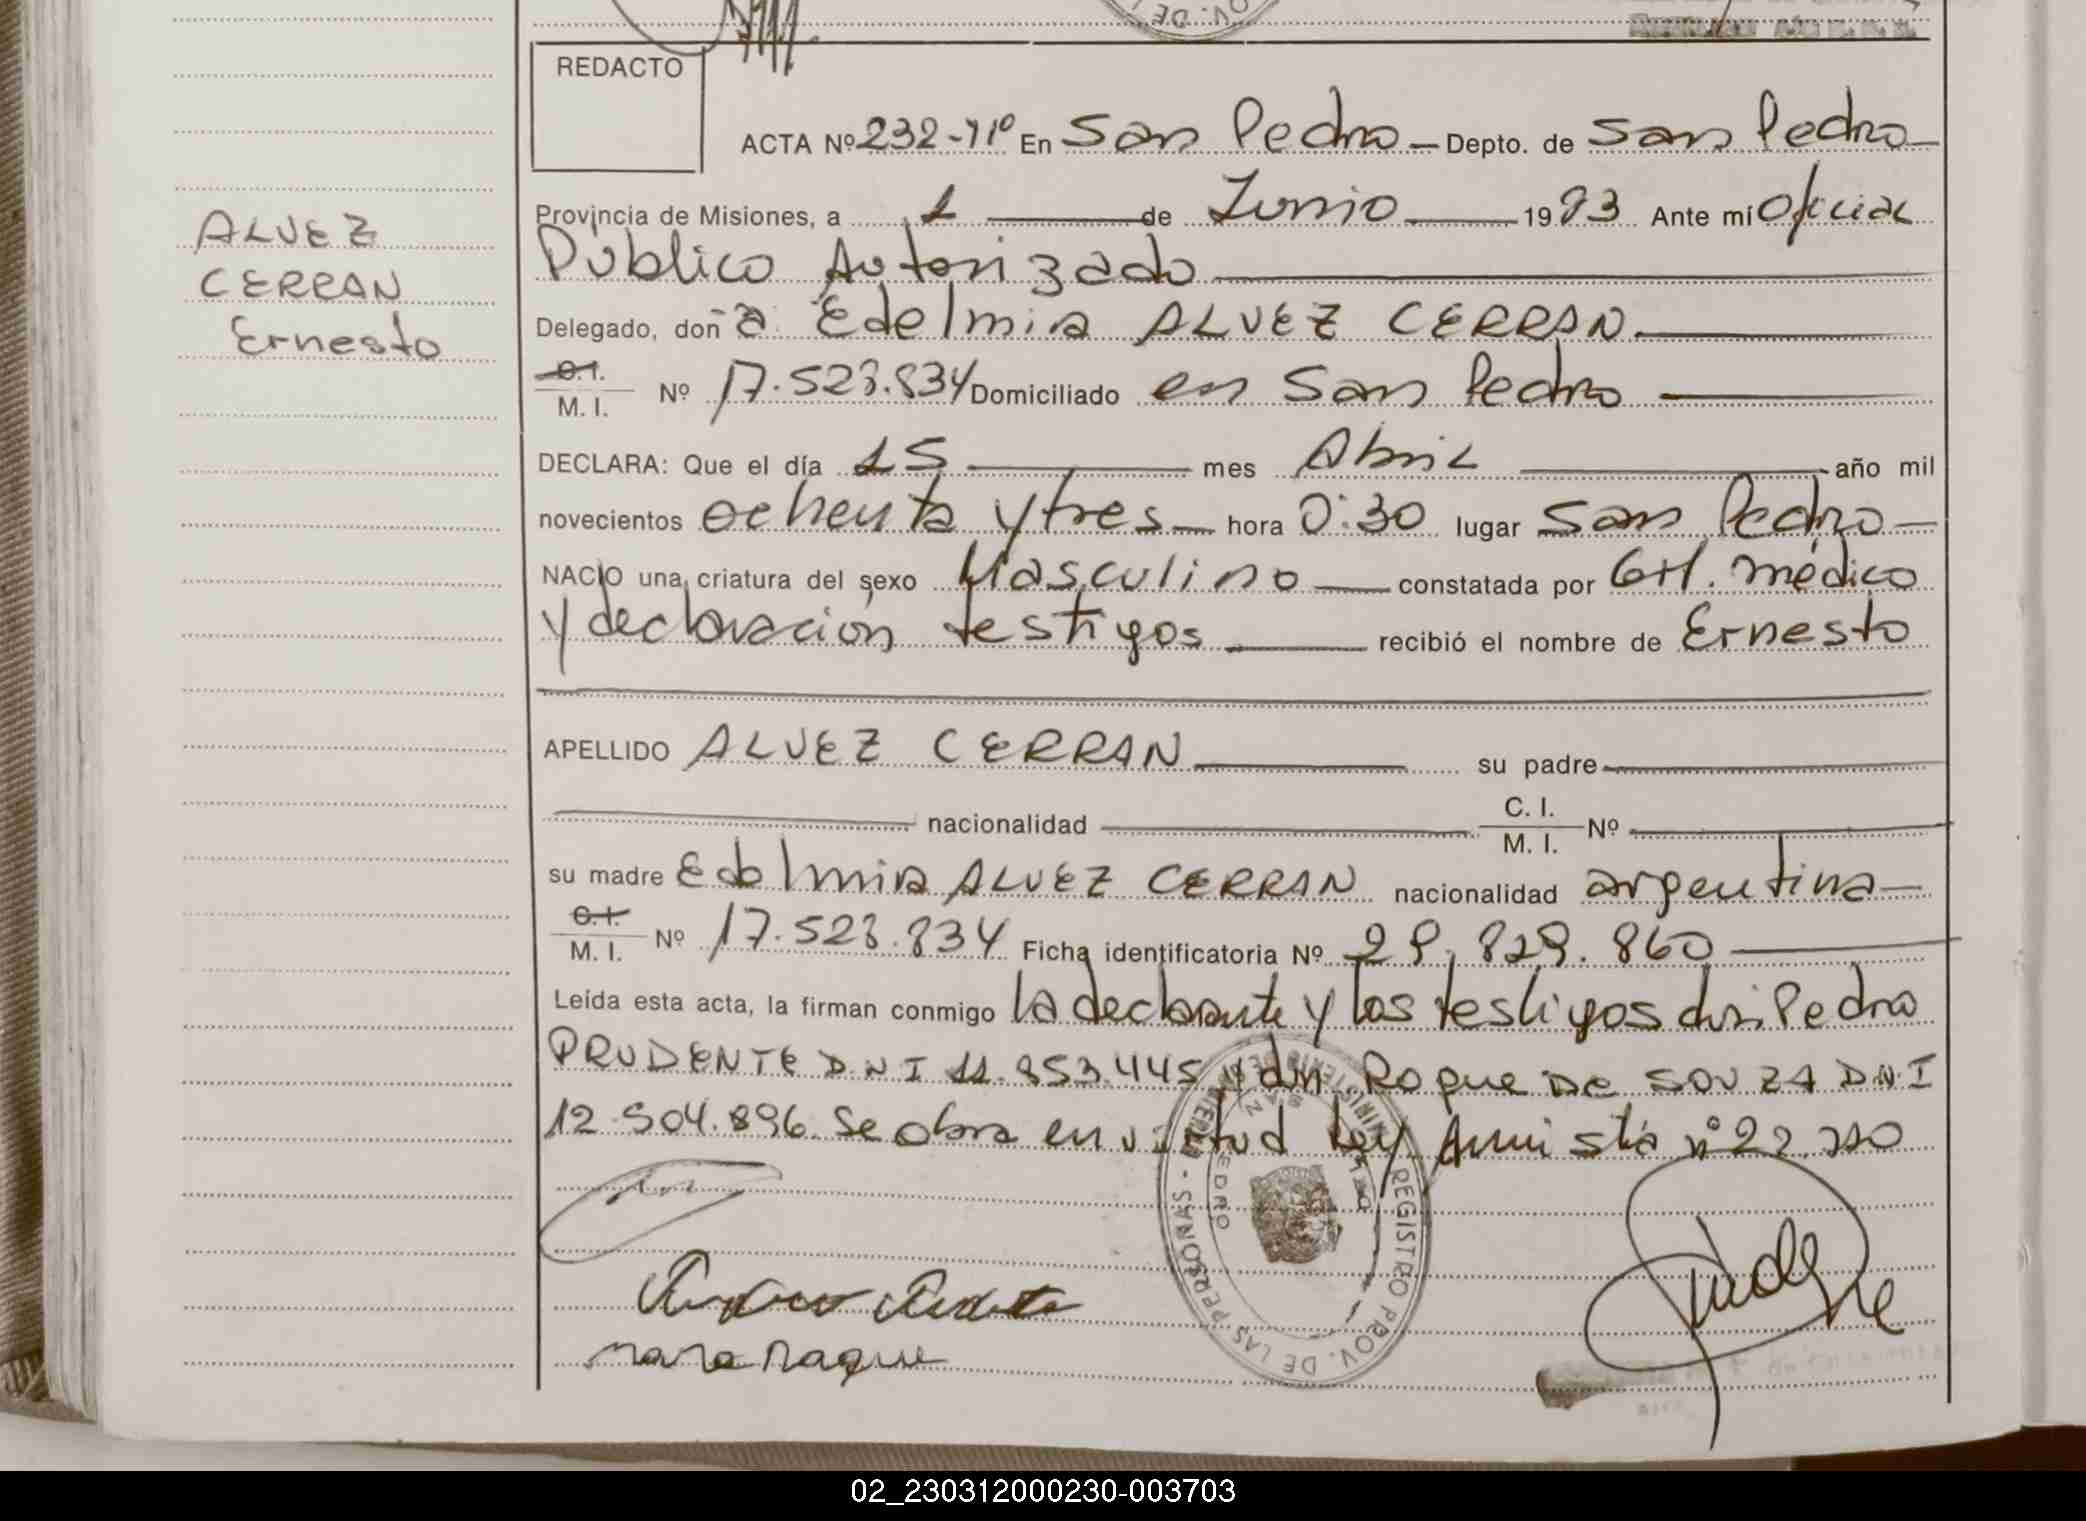 REDACTO
ACTA Nº 232-Tº En San Pedro Depto. de San Pedro
Provincia de Misiones, a 1 de Junio 1983 Ante mí Oficial
Público Autorizado
Delegado, doña Edelmira ALVEZ CERRAN
ALVEZ
CERRAN
Ernesto
C.I.
M. I. Nº 17.523.834 Domiciliado en San Pedro
DECLARA: Que el día 15 mes Abril año mil
novecientos ochenta y tres hora 0:30 lugar San Pedro
NACIO una criatura del sexo Masculino constatada por Crt. médico
y declaración testigos recibió el nombre de Ernesto
APELLIDO ALVEZ CERRAN su padre
nacionalidad C. I.
M. I. Nº
su madre Edelmira ALVEZ CERRAN nacionalidad argentina
C.I.
M. I. Nº 17.523.834 Ficha identificatoria Nº 29.829.860
Leída esta acta, la firman conmigo la declarante y los testigos don Pedro
PRUDENTE DNI 11.953.445 y don Roque DE SOUZA DNI
12.504.896. Se obra en virtud Ley Amnistía nº 22.
REGISTRO PROV. DE LAS PERSONAS
02_230312000230-003703